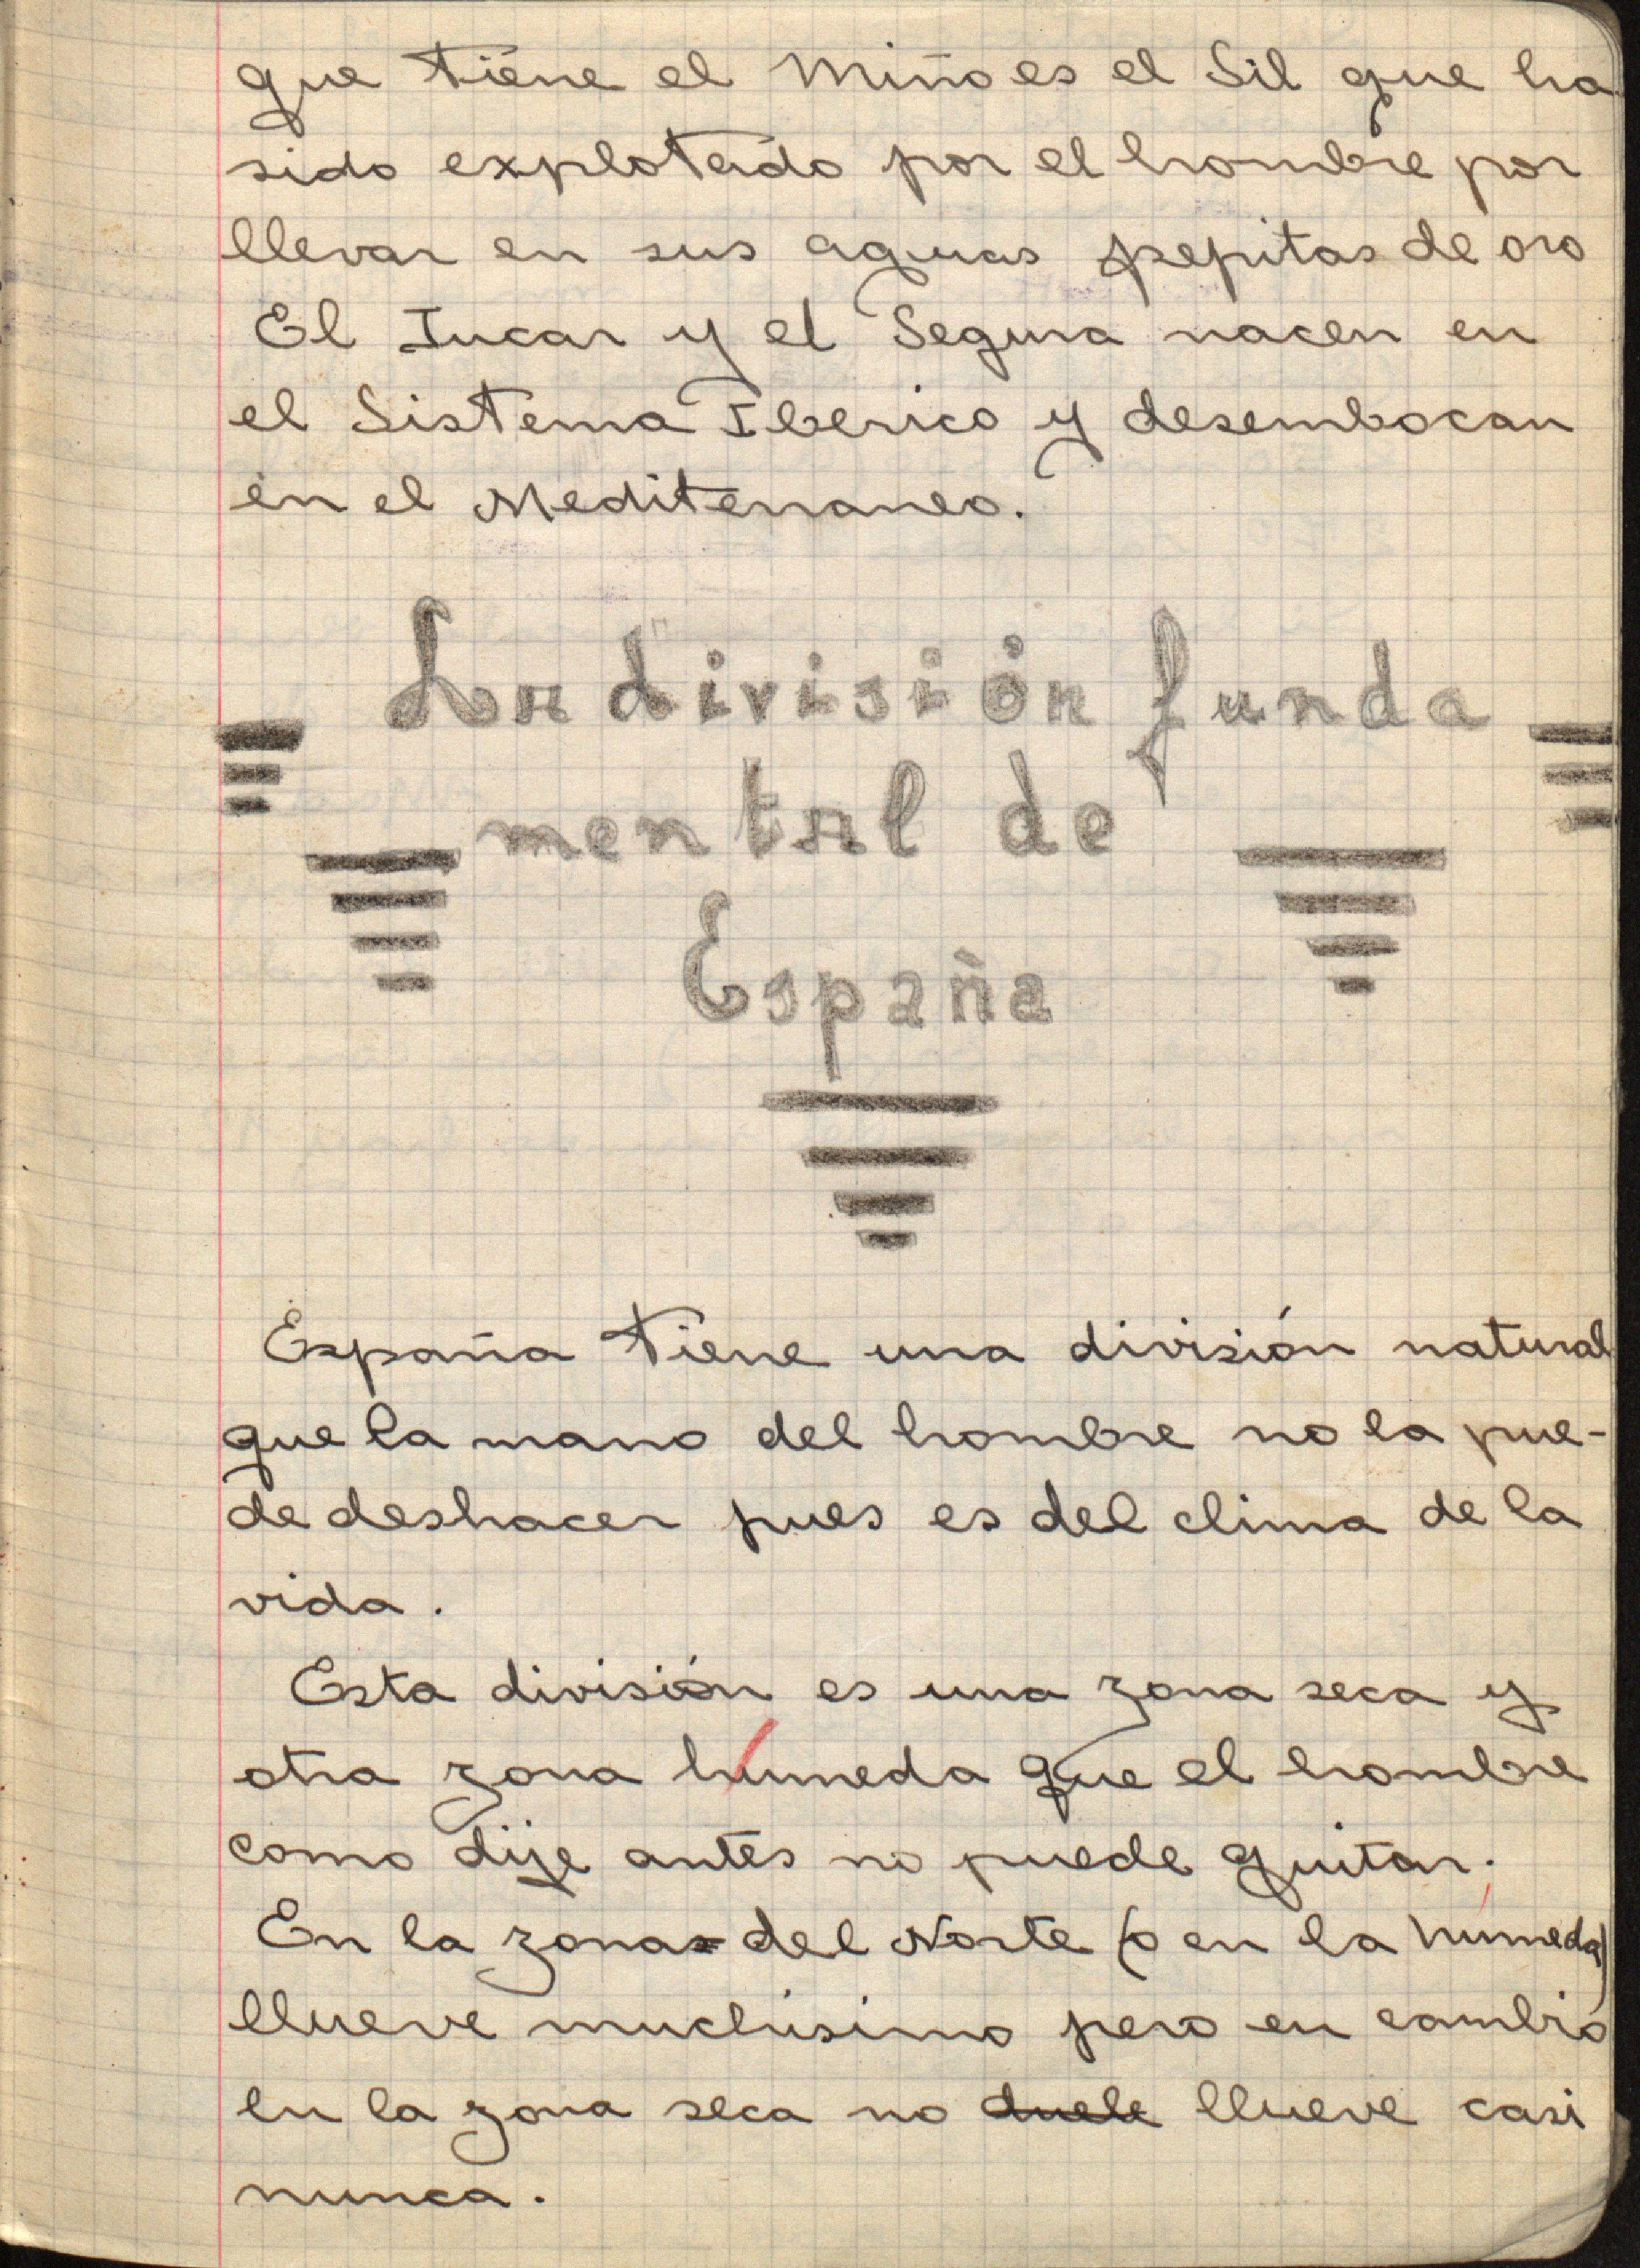 que tiene el Miño es el Sil que ha
sido explotado por el hombre por
llevar en sus aguas pepitas de oro
El Jucar y el Segura nacen en
el Sistema Iberico y desembocan
en el Mediterraneo.
La división funda
mental de
España
España tiene una división natural
que la mano del hombre no la pue-
de deshacer pues es del clima de la
vida.
Esta división es una zona seca y
otra zona húmeda que el hombre
como dije antes no puede quitar.
En la zona del Norte (o en la húmeda)
llueve muchisimo pero en cambio
en la zona seca no duele llueve casi
nunca.